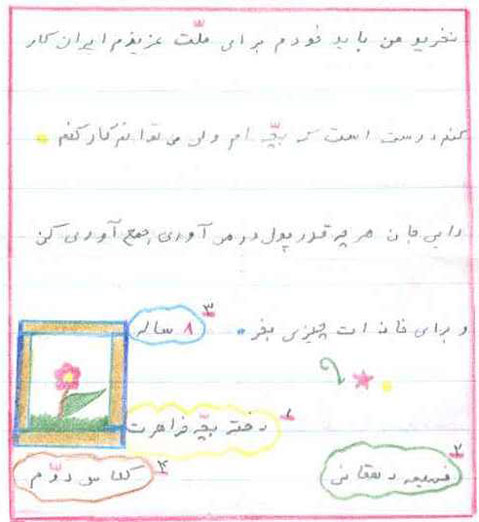 نخریو من باید خودم برای ملّت عزیزم ایران کار
کنم درست است که بچّه ام ولی می توانم کار کنم
دایی جان هر چه قدر پول در می آوری جمع آوری کن
و برای خانه ات چیزی بخر
۳ ۸ ساله
۱ دختر بچّه خواهرت
۲ دهقانی
۴ کلاس دوّم